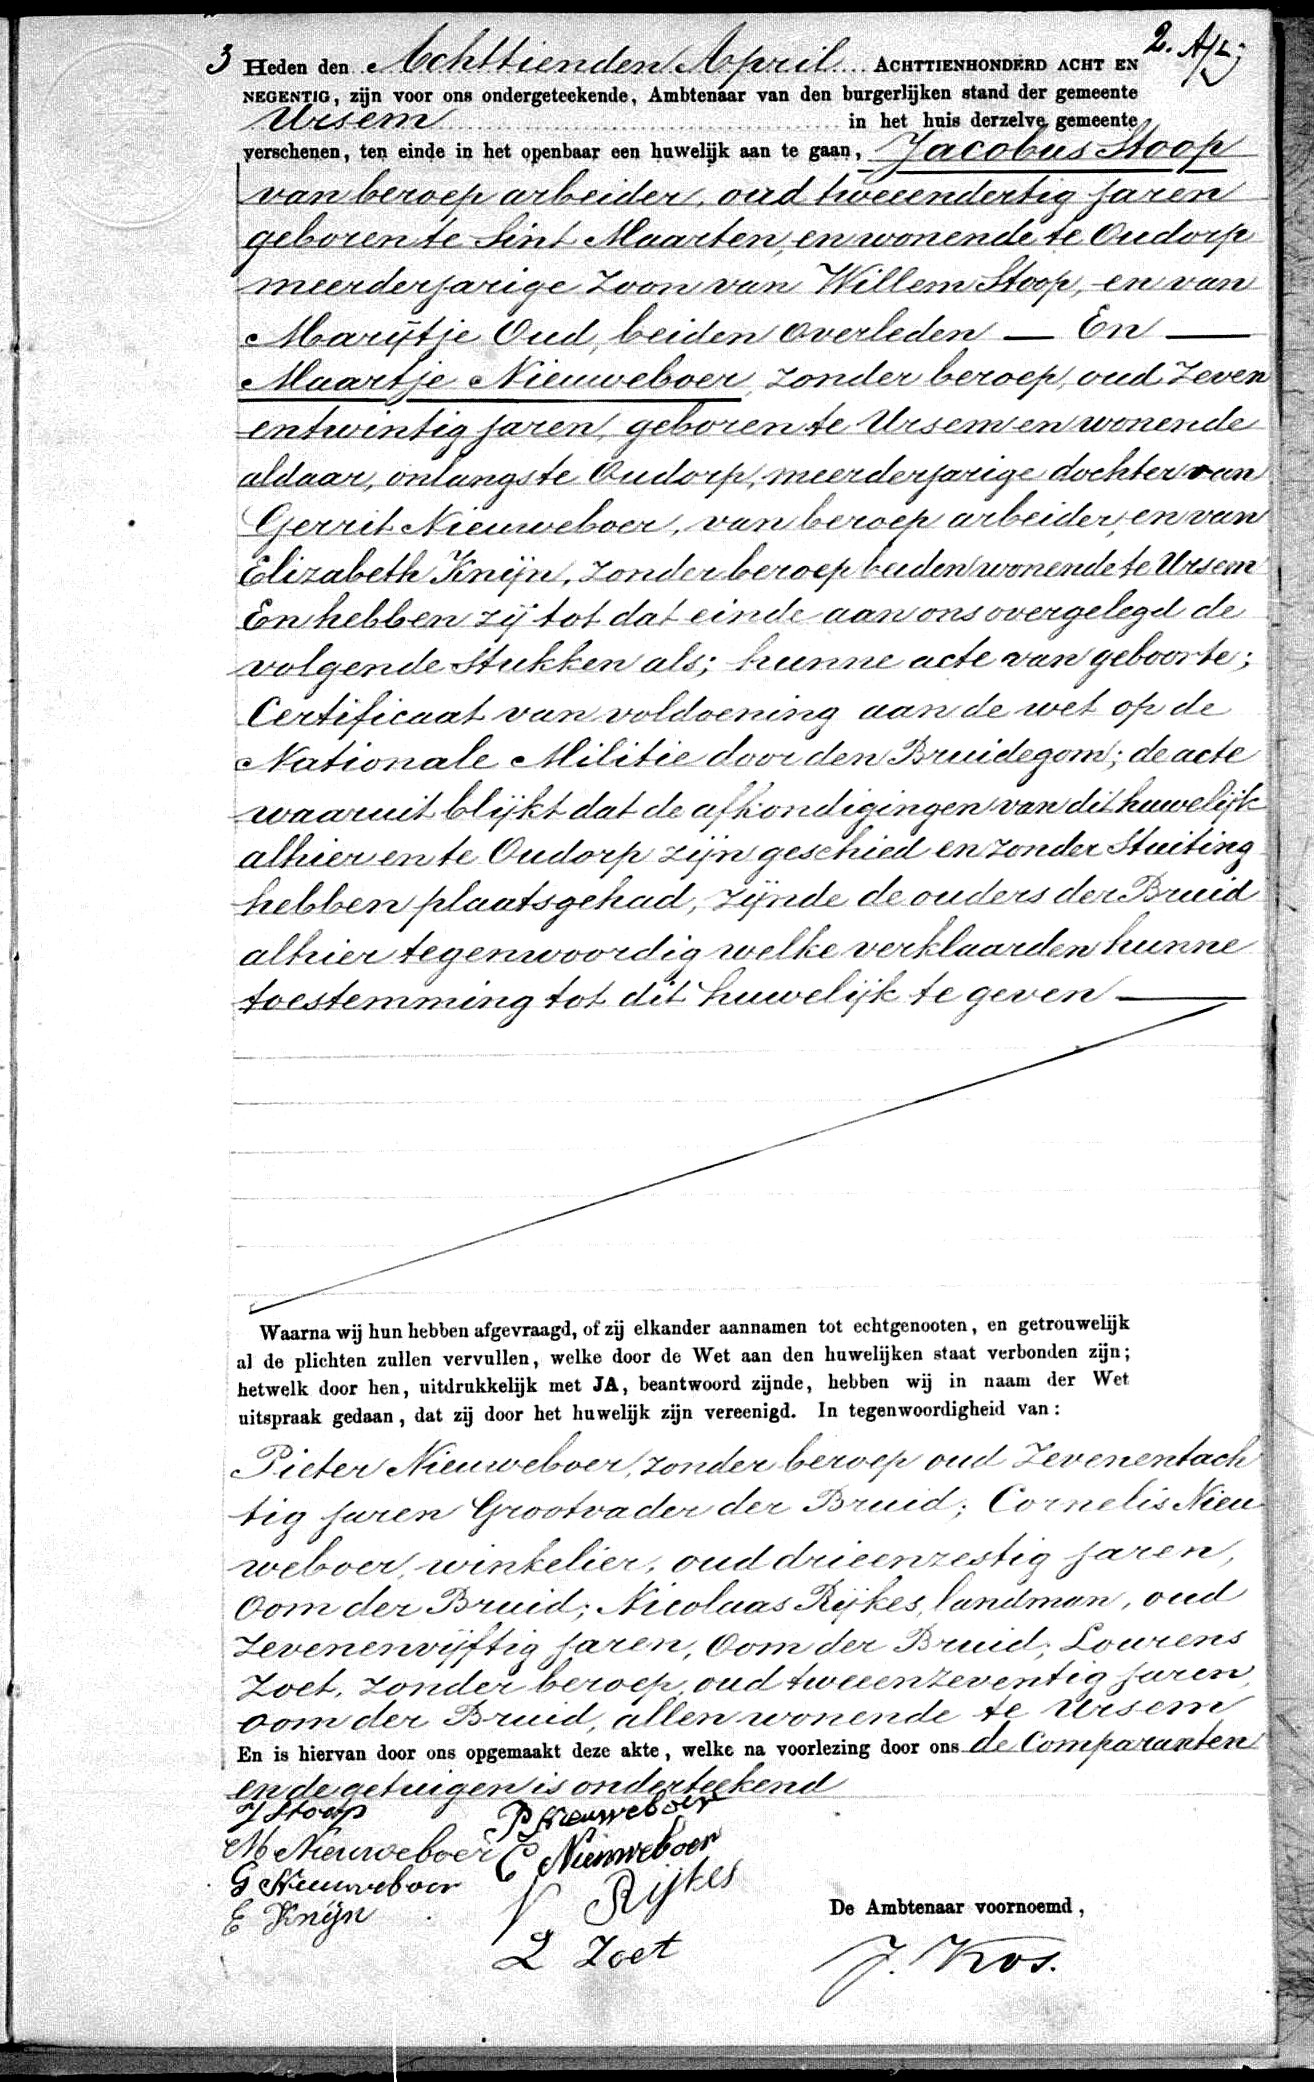 3 Heden den Achttienden April ACHTTIENHONDERD ACHT EN
NEGENTIG, zijn voor ons ondergeteekende, Ambtenaar van den burgerlijken stand der gemeente
Ursem in het huis derzelve gemeente
verschenen, ten einde in het openbaar een huwelijk aan te gaan, Jacobus Stoop
van beroep arbeider, oud tweeendertig jaren
geboren te Sint Maarten, en wonende te Oudorp
meerderjarige Zoon van Willem Stoop, en van
Marijtje Oud, beiden overleden — En —
Maartje Nieuweboer, zonder beroep, oud Zeven
entwintig jaren, geboren te Ursem en wonende
aldaar, onlangs te Oudorp, meerderjarige dochter van
Gerrit Nieuweboer, van beroep arbeider, en van
Elizabeth Knijn, zonder beroep beiden wonende te Ursem
En hebben zij tot dat einde aan ons overgelegd de
volgende Stukken als; hunne acte van geboorte;
Certificaat van voldoening aan de wet op de
Nationale Militie door den Bruidegom; de acte
waaruit blijkt dat de afkondigingen van dit huwelijk
alhier en te Oudorp zijn geschied en zonder Stuiting
hebben plaatsgehad, zijnde de ouders der Bruid
alhier tegenwoordig welke verklaarden hunne
toestemming tot dit huwelijk te geven —
Waarna wij hun hebben afgevraagd, of zij elkander aannamen tot echtgenooten, en getrouwelijk
al de plichten zullen vervullen, welke door de Wet aan den huwelijken staat verbonden zijn;
hetwelk door hen, uitdrukkelijk met JA, beantwoord zijnde, hebben wij in naam der Wet
uitspraak gedaan, dat zij door het huwelijk zijn vereenigd. In tegenwoordigheid van:
Pieter Nieuweboer, zonder beroep oud Zevenentach
tig jaren Grootvader der Bruid; Cornelis Nieu
weboer, winkelier, oud drieenzestig jaren,
Oom der Bruid; Nicolaas Rijkes, landman, oud
Zevenenvijftig jaren, Oom der Bruid; Lourens
Zoet, zonder beroep, oud tweeenzeventig jaren,
oom der Bruid, allen wonende te Ursem
En is hiervan door ons opgemaakt deze akte, welke na voorlezing door ons de Comparanten
en de getuigen is onderteekend
J Stoop P Nieuweboer
M Nieuweboer C Nieuweboer
G Nieuweboer N Rijkes
E Knijn L Zoet
De Ambtenaar voornoemd,
J. Kos.